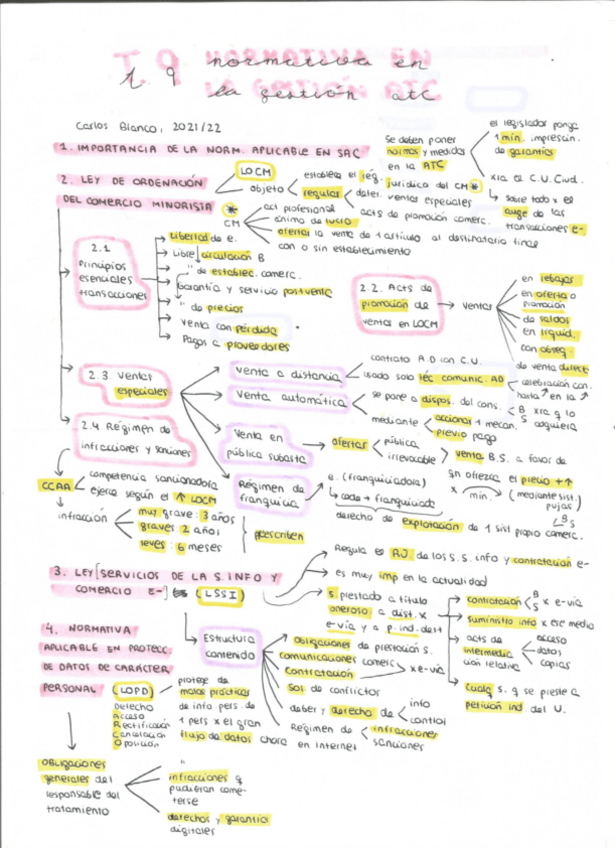 T. 9 normativa en
la gestión atc
Carlos Blanco, 2021/22
1. IMPORTANCIA DE LA NORM. APLICABLE EN SAC
se deben poner
normas y medidas
en la ATC
el legislador ponga
1 min. imprescin.
de garantías
xra el C.U. Ciud.
sobre todo x el
auge de las
transacciones e-
2. LEY DE ORDENACIÓN
DEL COMERCIO MINORISTA *
LOCM
objeto
establece el rég. jurídico del CM *
regular
deter. ventas especiales
acts de promoción comerc.
CM
act profesional
ánimo de lucro
ofertar la venta de 1 artículo al destinatario final
con o sin establecimiento
2.1
Principios
esenciales
transacciones
Libertad de e.
Libre circulación B
" de establec. comerc.
Garantía y servicio postventa
" de precios
Venta con pérdida
Pagos a proveedores
2.2. Acts de
promoción de
ventas en LOCM
ventas
en rebajas
en oferta o
promoción
de saldos
en liquid.
con obseq.
de venta direct.
2.3. Ventas
especiales
Venta a distancia
contrato A.D con C.U.
usado solo téc comunic. AD
celebración con.
hasta en la
Venta automática
se pone a dispos. del cons.
B
S
xra q lo
adquiera
mediante
accionar 1 mecan.
previo pago
Venta en
pública subasta
ofertar
pública
irrevocable
venta B.S. a favor de
qn ofrezca el precio + ↑
x min. (mediante sist.)
pujas
B
S
Régimen de
franquicia
e. (franquiciadora)
cede → franquiciado
derecho de explotación de 1 sist propio comerc.
2.4 Régimen de
infracciones y sanciones
CCAA
competencia sancionadora
ejerce según el ↑ LOCM
infracción
muy grave: 3 años
graves: 2 años
leves: 6 meses
prescriben
3. LEY SERVICIOS DE LA S. INFO Y
COMERCIO E- (LSSI)
Regula el RJ de los S.S. info y contratación e-
es muy imp en la actualidad
S. prestado a título
oneroso a dist. x
e-vía y a p. ind. dest
contratación B S x e-vía
suministro info x ese medio
acts de
intermedia
ción relativa
acceso
datos
copias
cualq S. q se preste a
petición ind del U.
Estructura
contenido
Obligaciones de prestación S.
comunicaciones comerc
Contratación
x e-vía
Sol de conflictos
deber y derecho de
info
control
Régimen de
infracciones
sanciones
4. NORMATIVA
APLICABLE EN PROTECC.
DE DATOS DE CARÁCTER
PERSONAL (LOPD)
protege de
malas prácticas
de info pers. de
1 pers x el gran
flujo de datos ahora en internet
Derecho
Acceso
Rectificación
Cancelación
Oposición
Obligaciones
generales del
responsable del
tratamiento
"
infracciones q
pudieran come-
terse
derechos y garantía
digitales